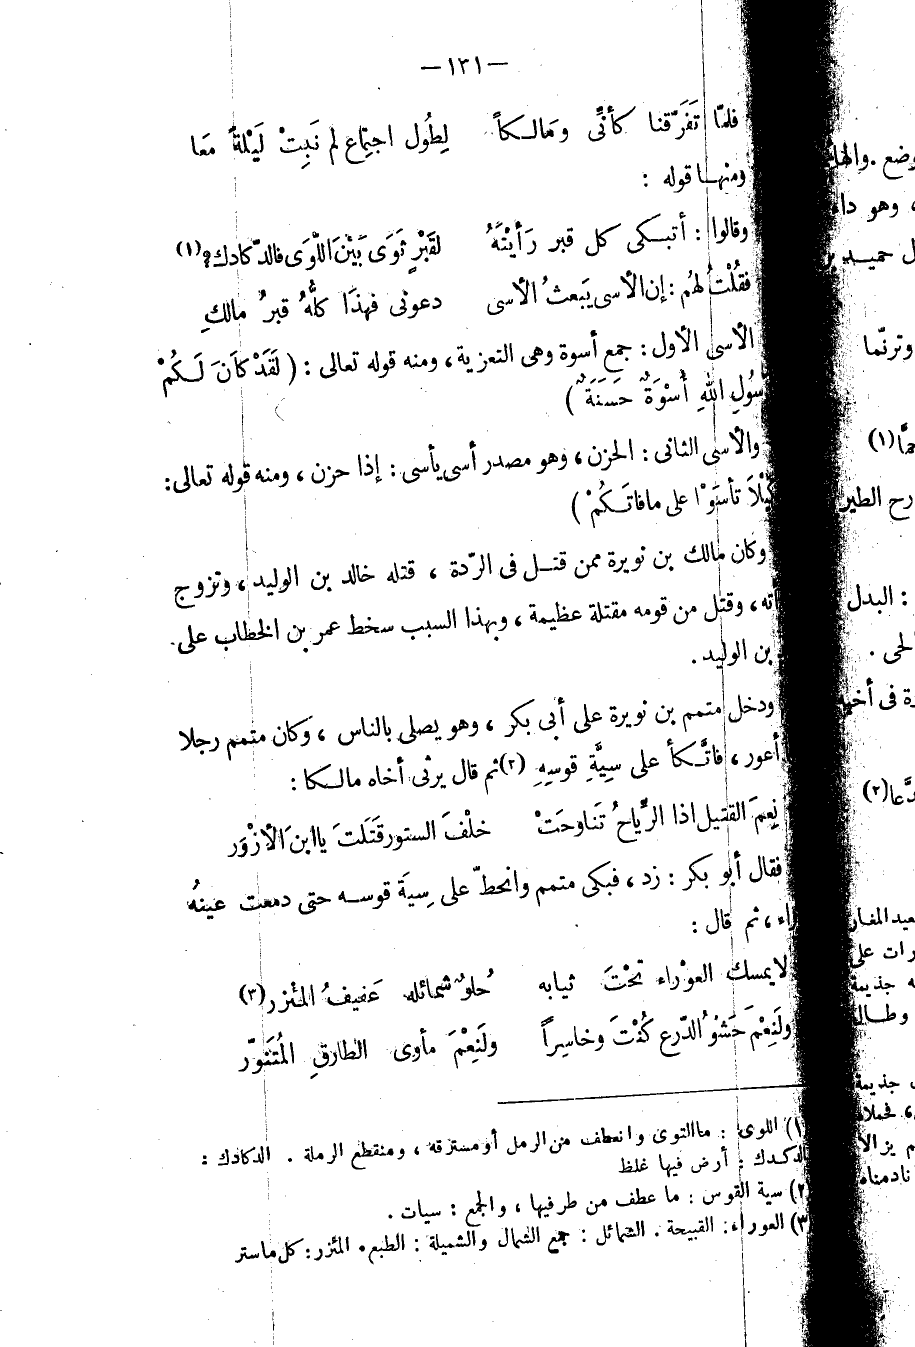 — ١٣١ —
فلمّا تَفَرّقنا كأنِّى ومَالـكاً لِطُول اجتِماع لم نَبِتْ لَيْلةً معَا
ومنهـا قوله :
وقالوا : أتبـكى كل قبر رَأيْتَهُ لقَبْرٍ ثَوَى بَيْنَ اللّوَى فالدّكادك؟(١)
فقُلْتُ لهُم : إن الأسى يَبعثُ الأسى دعونى فهذَا كلُّهُ قبرُ مالكِ
الأسى الأول : جمع أسوة وهى التعزية ، ومنه قوله تعالى : ( لَقَدْ كاَنَ لَـكُمْ
سُولِ اللهِ أُسْوَةٌ حَسَنَةٌ )
والأسى الثانى : الحزن ، وهو مصدر أسى يأسى : إذا حزن ، ومنه قوله تعالى :
كَيْلاَ تأسَوْا على مافاتَـكُمْ )
وكان مالك بن نويرة ممن قتـل فى الرّدة ، قتله خالد بن الوليد ، وتزوج
أته ، وقتل من قومه مقتلة عظيمة ، وبهذا السبب سخط عمر بن الخطاب على
بن الوليد .
ودخل متمم بن نويرة على أبى بكر ، وهو يصلى بالناس ، وكان متمم رجلا
أعور ، فاتَّـكأ على سِيَّةِ قوسِهِ (٢) ثم قال يرثى أخاه مالـكا :
نِعمَ القتيل اذا الرِّياحُ تَناوحَتْ خلْفَ الستور قَتَلتَ يا ابنَ الأزْوَر
فقال أبو بكر : زد ، فبكى متمم وانحطّ على سِيَة قوسـه حتى دمعت عينهُ
راء ، ثم قال :
لا يمسك العوْراء تحْتَ ثيابه حُلوٌ شمائله عَفيفُ المئزر(٣)
ولَنِعْمَ حَشْوُ الدّرع كُنْتَ وخاسِراً ولَنِعْمَ مأوى الطارقِ المُتَنَوّر
(١) اللوى : ما التوى وانعطف من الرمل أو مسترقه ، ومنقطع الرملة . الدكادك :
الدكدك : أرض فيها غلظ
(٢) سية القوس : ما عطف من طرفيها ، والجمع : سيات .
(٣) العوراء : القبيحة . الشمائل : جمع الشمال والشميلة : الطبع . المئزر : كل ما ستر
وضع . والها
، وهو داء
ل حميـد بن
وترنّما
(١)
رح الطير
: البدل
لحى .
ة فى أخيه
دَّعا(٢)
رات على
ه جذيمة
جذيمة
نادمناه